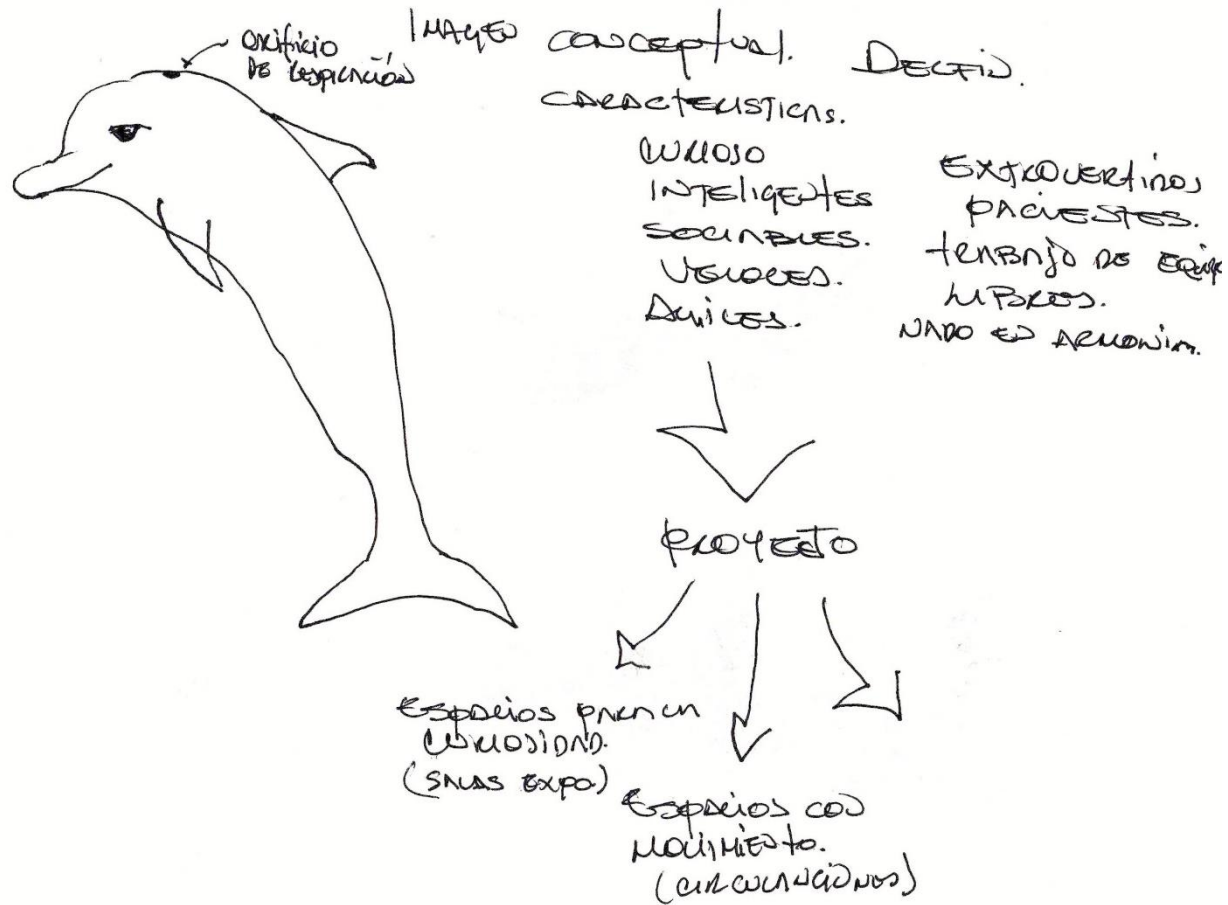 orificio
DE RESPIRACIÓN
IMAGEN CONCEPTUAL. DELFIN.
CARACTERISTICAS.
CURIOSO
INTELIGENTES
SOCIABLES.
VELOCES.
EXTROVERTIDOS
PACIENTES.
TRABAJO DE EQUIPO
LIBRES.
NADO EN ARMONIA.
PROYECTO
ESPACIOS PARA LA
CURIOSIDAD.
(SALAS EXPO)
ESPACIOS CON
MOVIMIENTO.
(CIRCULACIONES)